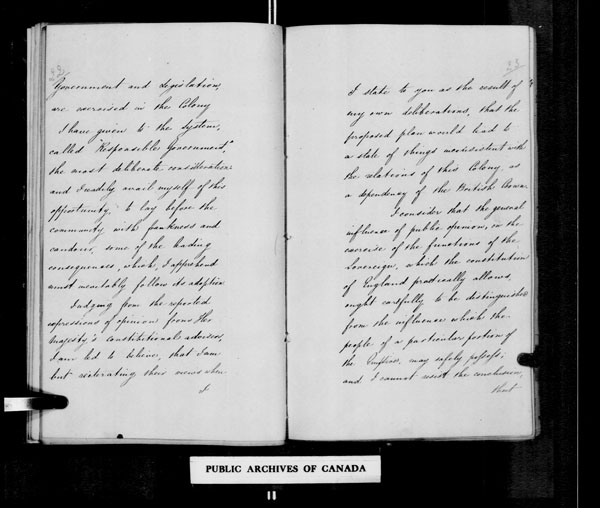 Government and Legislation,
are exercised in the Colony
I have given to the system,
called "Responsible Government,"
the most deliberate consideration:
and I readily avail myself of this
opportunity, to lay before the
community with frankness and
candour, some of the leading
consequences, which, I apprehend
must inevitably follow its adoption.
Judging from the repeated
expressions of opinion from Her
Majesty's constitutional advisers,
I am led to believe, that I am
but reiterating their views when
I
I state to you as the result of
my own deliberations, that the
proposed plan would lead to
a state of things inconsistent with
the relations of this Colony, as
a dependency of the British Crown
I consider that the general
influence of public opinion, in the
exercise of the functions of the
Sovereign, which the constitution
of England practically allows,
ought carefully to be distinguished
from the influence which the
people of a particular portion of
the Empire, may safely possess;
and I cannot resist the conclusion,
that
PUBLIC ARCHIVES OF CANADA